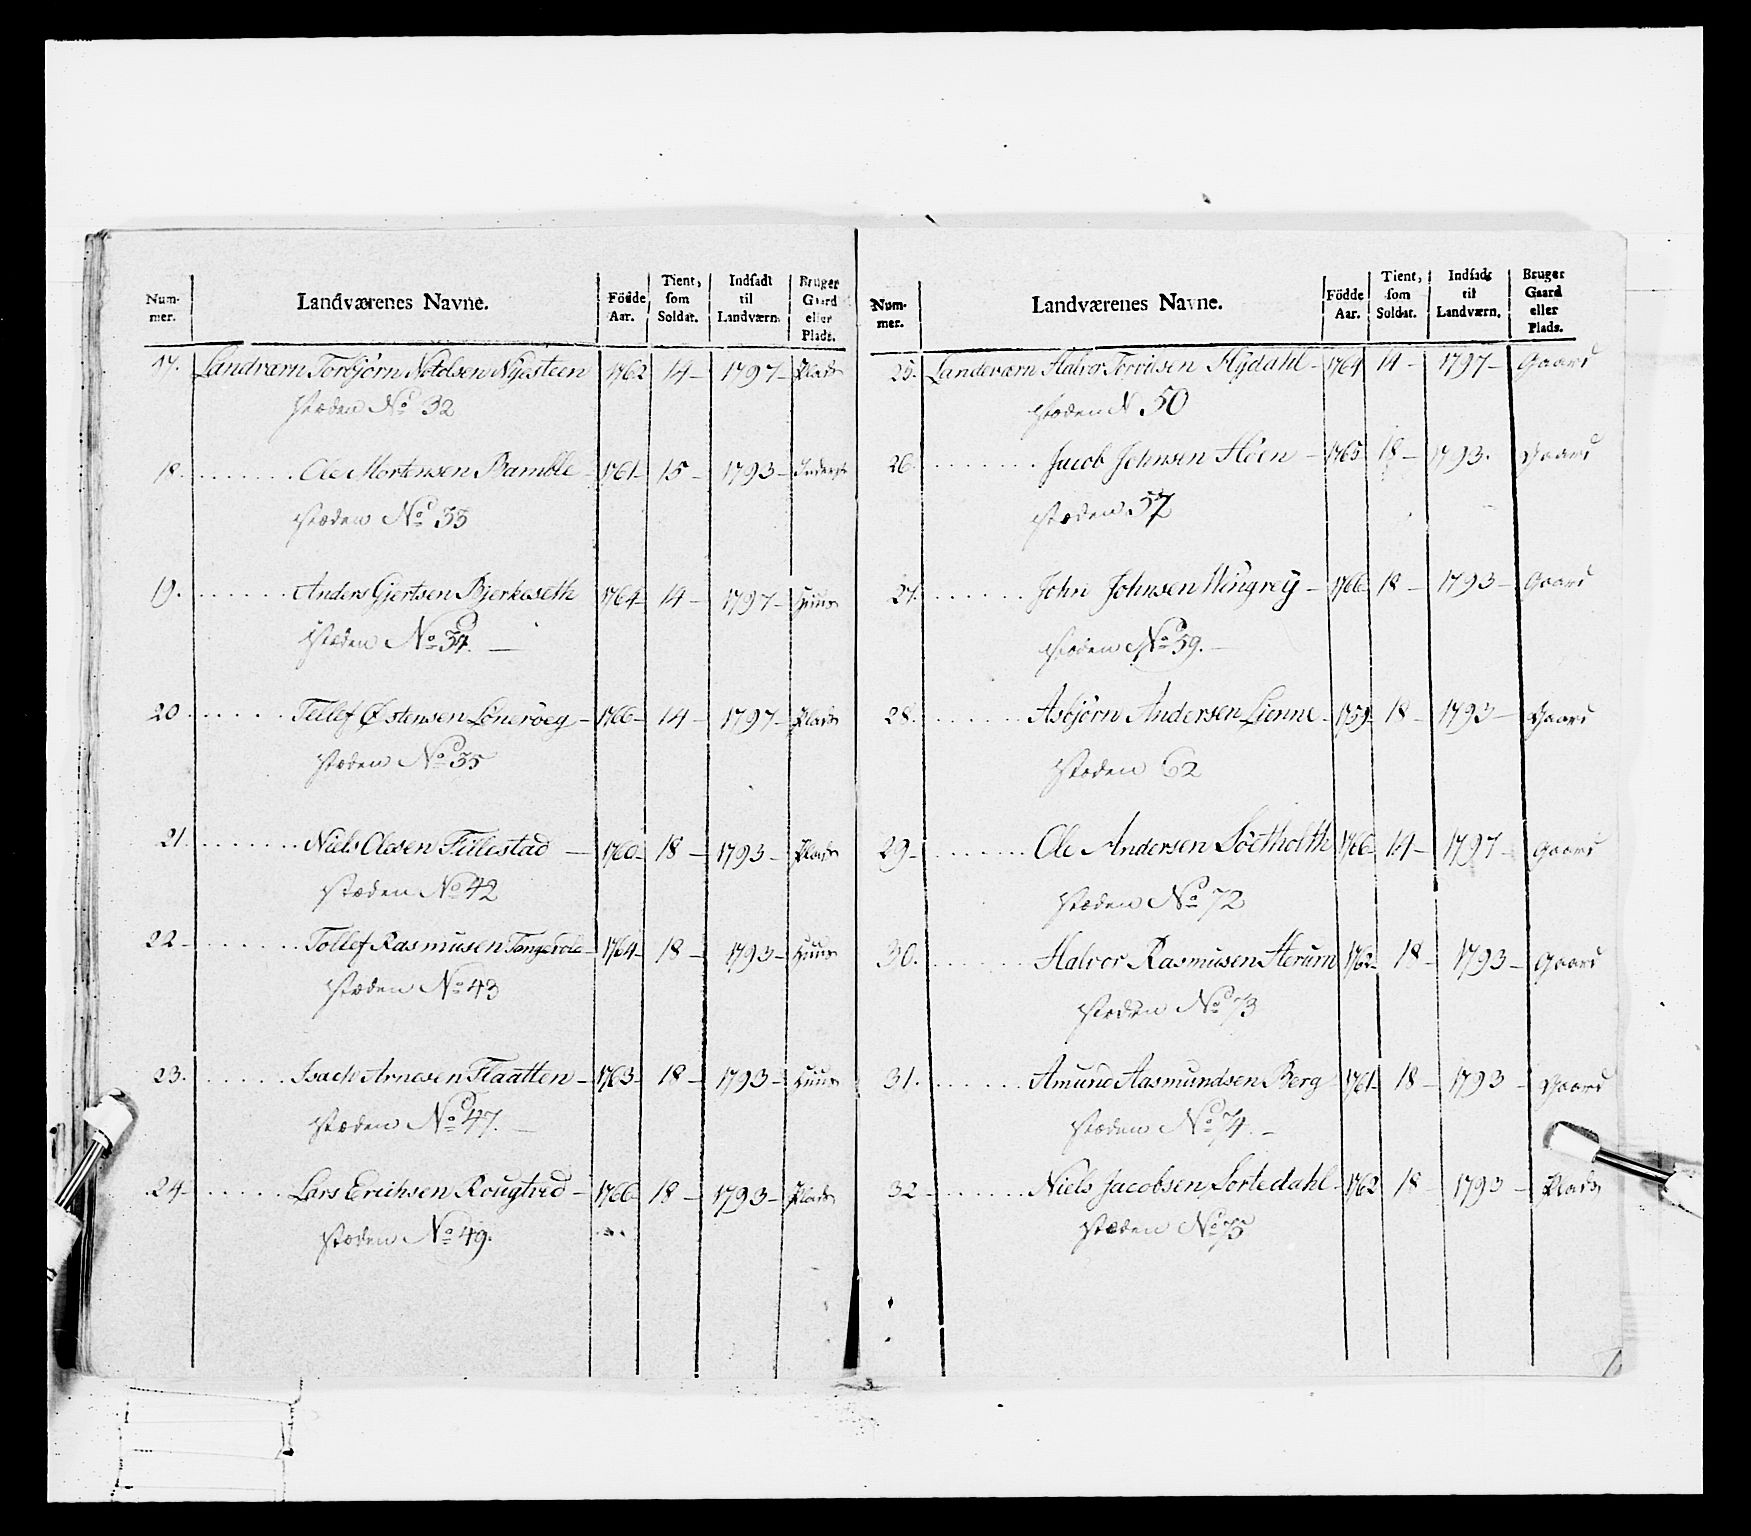 Num-
mer.
Landværenes Navne.
Födde
Aar.
Tient,
som
Soldat.
Indsadt
til
Landværn.
Bruger
Gaard
eller
Plads.
17. Landværn Torbjörn Nysteen 1762 14 - 1797 - Plads
No 32
18. Ole Mortensen Bamble - 1761 - 15 - 1793 -
No 33
19. Anders Gjertsen Bjerkeseth 1764 - 14 - 1797 - Huus
No 34. -
20 Tellef Østensen Löneröeg - 1766 - 14 - 1797 - Plads
No 35
21 Niels Olesen Fillestad - 1760 - 18 - 1793 - Plads
No 42
22 - Tollef Rasmusen 1764 - 18 - 1793 - Huus
No 43
23. Isach Arnesen Flaatten - 1763 - 18 - 1793 - Huus
No 47. -
24 - Lars Erichsen Rougtved - 1766 - 18 - 1793 - Plads
No 49.
Num-
mer.
Landværenes Navne.
Födde
Aar.
Tient,
som
Soldat.
Indsadt
til
Landværn.
Bruger
Gaard
eller
Plads.
25. Landeværn Halvor Flydahl - 1764 14 - 1797 - Gaard
N 50
26. Jacob Johnsen Höen - 1765 18 - 1793. Gaard
57
27. John Johnsen Wingrey - 1766 18 - 1793 - Gaard
No 59. -
28. Asbjörn Andersen Lienne - 1759 - 18 - 1793 - Gaard
62
29 - Ole Andersen Söetholth 1766 - 14 - 1797 Gaard
No 72
30. Halvor Rasmusen Herum 1762 - 18 - 1793 - Gaard
No 73
31. Amund Aasmundsen Berg 1761 - 18 - 1793 - Gaard
No 74. -
32 - Niels Jacobsen Sortedahl - 1762 18 - 1793 - Plads
No 75